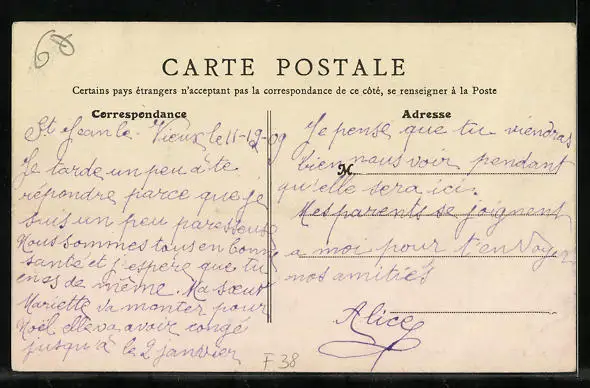 68
CARTE POSTALE
Certains pays étrangers n'acceptant pas la correspondance de ce côté, se renseigner à la Poste
Correspondance
St Jean le Vieux le 11-12-09
Je tarde un peu à te
répondre parce que je
suis un peu paresseuse
Nous sommes tous en bonne
santé et j'espère que tu
en es de même. Ma sœur
Mariette va monter pour
Noël elle va avoir congé
jusqu'à le 2 janvier
Adresse
M
Je pense que tu viendras
bien nous voir pendant
qu'elle sera ici.
Mes parents se joignent
a moi pour t'envoyer
nos amitiés
Alice
F 38